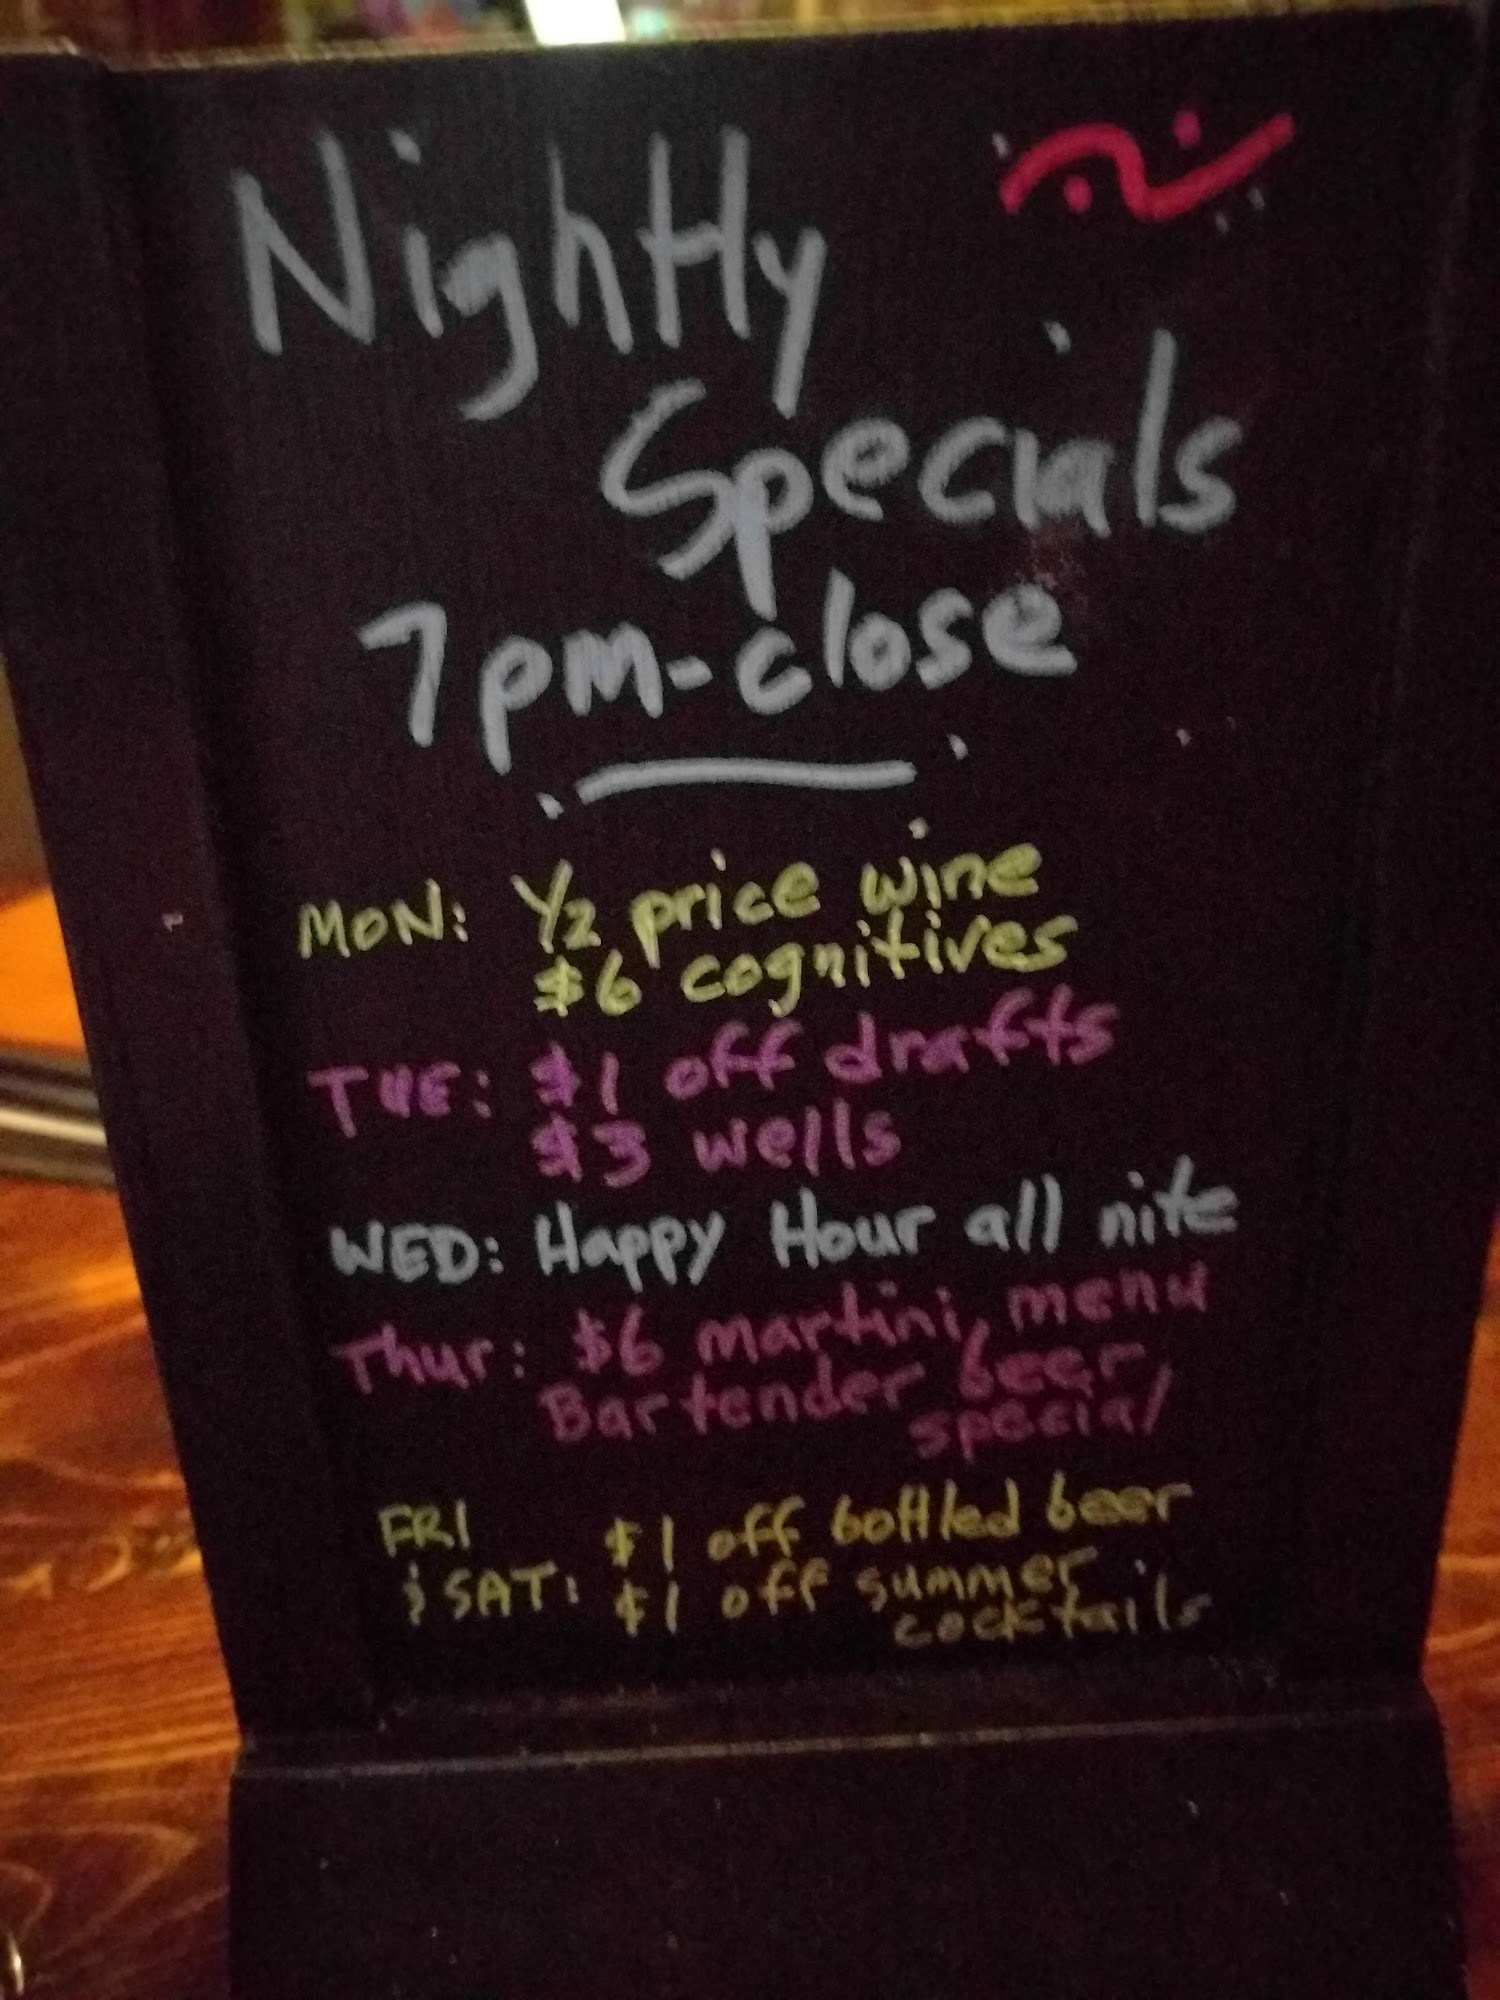 Nightly
Specials
7pm-close
MON: 1/2 price wine
$6 cognitives
TUE: $1 off drafts
$3 wells
WED: Happy Hour all nite
Thur: $6 martini menu
Bartender beer
special
FRI $1 off bottled beer
& SAT: $1 off summer
cocktails